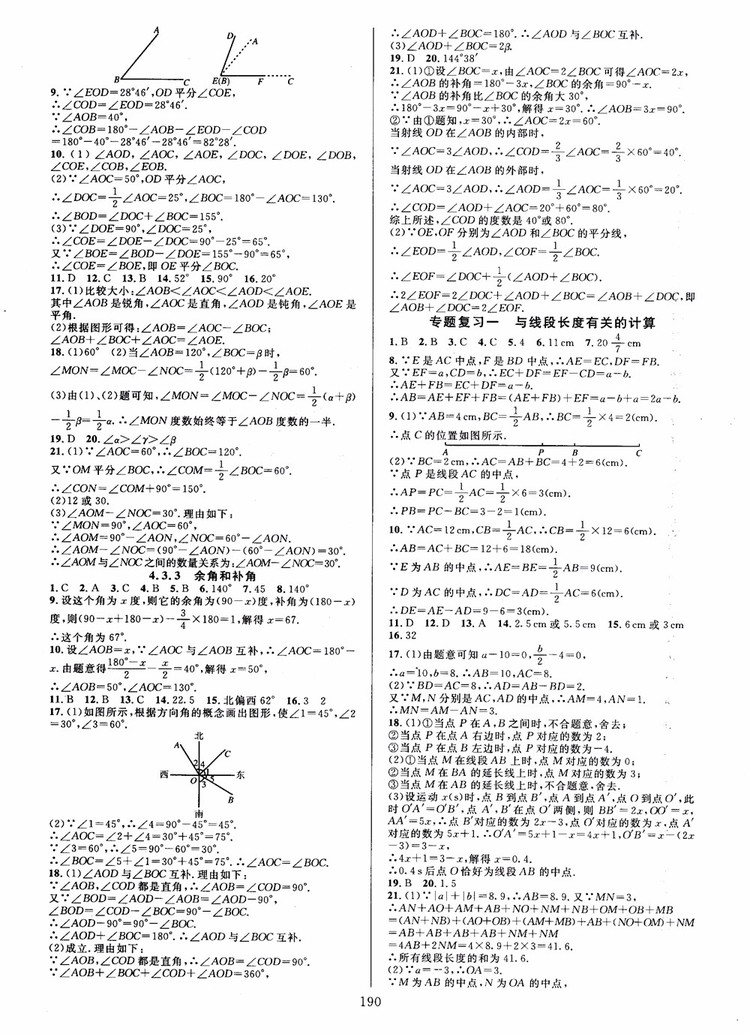 A
D
A
B
C
E(B)
F
C
9.∵∠EOD=28°46′,OD平分∠COE,
∴∠COD=∠EOD=28°46′.
∵∠AOB=40°,
∴∠COB=180°-∠AOB-∠EOD-∠COD
=180°-40°-28°46′-28°46′=82°28′.
10.(1)∠AOD,∠AOC,∠AOE,∠DOC,∠DOE,∠DOB,
∠COE,∠COB,∠EOB.
(2)∵∠AOC=50°,OD平分∠AOC,
∴∠DOC=1/2∠AOC=25°,∠BOC=180°-∠AOC=130°.
∴∠BOD=∠DOC+∠BOC=155°.
(3)∵∠DOE=90°,∠DOC=25°,
∴∠COE=∠DOE-∠DOC=90°-25°=65°.
又∵∠BOE=∠BOD-∠DOE=155°-90°=65°,
∴∠COE=∠BOE,即OE平分∠BOC.
11.D 12.C 13.B 14.52° 15.90° 16.20°
17.(1)比较大小:∠AOB<∠AOC<∠AOD<∠AOE.
其中∠AOB是锐角,∠AOC是直角,∠AOD是钝角,∠AOE是
平角.
(2)根据图形可得:∠AOB=∠AOC-∠BOC;
∠AOB+∠BOC+∠AOC=∠AOE.
18.(1)60° (2)当∠AOB=120°,∠BOC=β时,
∠MON=∠MOC-∠NOC=1/2(120°+β)-1/2β=60°.
(3)由(1)、(2)题可知,∠MON=∠MOC-∠NOC=1/2(α+β)
-1/2β=1/2α.∴∠MON度数始终等于∠AOB度数的一半.
19.D 20.∠α>∠γ>∠β
21.(1)∵∠AOC=60°,∴∠BOC=120°.
又∵OM平分∠BOC,∴∠COM=1/2∠BOC=60°.
∴∠CON=∠COM+90°=150°.
(2)12或30.
(3)∠AOM-∠NOC=30°.理由如下:
∵∠MON=90°,∠AOC=60°,
∴∠AOM=90°-∠AON,∠NOC=60°-∠AON.
∴∠AOM-∠NOC=(90°-∠AON)-(60°-∠AON)=30°.
∴∠AOM与∠NOC之间的数量关系为:∠AOM-∠NOC=30°.
4.3.3 余角和补角
1.C 2.A 3.C 4.B 5.B 6.140° 7.45 8.140°
9.设这个角为x度,则它的余角为(90-x)度,补角为(180-x)
度,则(90-x+180-x)-3/4×180=1,解得x=67.
∴这个角为67°.
10.设∠AOB=x,∵∠AOC与∠AOB互补,∴∠AOC=180°-
x.由题意得(180°-x)/2-x/2=40°,解得x=50°,
∴∠AOB=50°,∠AOC=130°.
11.B 12.B 13.C 14.22.5 15.北偏西62° 16.3 2
17.(1)如图所示,根据方向角的概念画出图形,使∠1=45°,∠2
=30°,∠3=60°.
北
A
C
2
4
1
西
5
东
O
3
B
南
(2)∵∠1=45°,∴∠4=90°-45°=45°.
∴∠AOC=∠2+∠4=30°+45°=75°.
∵∠3=60°,∴∠5=90°-60°=30°.
∴∠BOC=∠5+∠1=30°+45°=75°.∴∠AOC=∠BOC.
18.(1)∠AOD与∠BOC互补.理由如下:
∵∠AOB,∠COD都是直角,∴∠AOB=∠COD=90°.
又∵∠BOD=∠AOD-∠AOB=∠AOD-90°,
∠BOD=∠COD-∠BOC=90°-∠BOC,
∴∠AOD-90°=90°-∠BOC.
∴∠AOD+∠BOC=180°.∴∠AOD与∠BOC互补.
(2)成立.理由如下:
∵∠AOB,∠COD都是直角,∴∠AOB=∠COD=90°.
∵∠AOB+∠BOC+∠COD+∠AOD=360°,
∴∠AOD+∠BOC=180°.∴∠AOD与∠BOC互补.
(3)∠AOD+∠BOC=2β.
19.D 20.144°38′
21.(1)①设∠BOC=x,由∠AOC=2∠BOC可得∠AOC=2x,
∴∠AOB的补角=180°-3x,∠BOC的余角=90°-x.
∵∠AOB的补角比∠BOC的余角大30°,
∴180°-3x=90°-x+30°,解得x=30°.∴∠AOB=3x=90°.
②∵由①题知,x=30°,∴∠AOC=2x=60°.
当射线OD在∠AOB的内部时,
∵∠AOC=3∠AOD,∴∠COD=2/3∠AOC=2/3×60°=40°.
当射线OD在∠AOB的外部时,
∵∠AOC=3∠AOD,∴∠AOD=1/3∠AOC=1/3×60°=20°.
∴∠COD=∠AOD+∠AOC=20°+60°=80°.
综上所述,∠COD的度数是40°或80°.
(2)∵OE,OF分别为∠AOD和∠BOC的平分线,
∴∠EOD=1/2∠AOD,∠COF=1/2∠BOC.
∴∠EOF=∠DOC+1/2(∠AOD+∠BOC).
∴2∠EOF=2∠DOC+∠AOD+∠BOC=∠AOB+∠DOC,即
∠AOB+∠DOC=2∠EOF.
专题复习一 与线段长度有关的计算
1.B 2.B 3.C 4.C 5.4 6.11cm 7.20 4/7cm
8.∵E是AC中点,F是BD中点,∴AE=EC,DF=FB.
又∵EF=a,CD=b,∴EC+DF=EF-CD=a-b.
∴AE+FB=EC+DF=a-b.
∴AB=AE+EF+FB=(AE+FB)+EF=a-b+a=2a-b.
9.(1)∵AB=4cm,BC=1/2AB,∴BC=1/2×4=2(cm).
∴点C的位置如图所示.
A P B C
(2)∵BC=2cm,∴AC=AB+BC=4+2=6(cm).
∵点P是线段AC的中点,
∴AP=PC=1/2AC=1/2×6=3(cm).
∴PB=PC-BC=3-2=1(cm).
10.∵AC=12cm,CB=1/2AC,∴CB=1/2×12=6(cm).
∴AB=AC+BC=12+6=18(cm).
∵E为AB的中点,∴AE=BE=1/2AB=9(cm).
∵D为AC的中点,∴DC=AD=1/2AC=6(cm).
∴DE=AE-AD=9-6=3(cm).
11.D 12.D 13.A 14.2.5cm或5.5cm 15.6cm或3cm
16.32
17.(1)由题意可知a-10=0,b/2-4=0,
∴a=10,b=8.∴AB=10,AC=8.
(2)∵BD=AC=8,∴AD=AB-BD=2.
又∵M,N分别是AC,AD的中点,∴AM=4,AN=1.
∴MN=AM-AN=3.
18.(1)①当点P在A,B之间时,不合题意,舍去;
②当点P在点A右边时,点P对应的数为2;
③当点P在点B左边时,点P对应的数为-4.
(2)①当点M在线段AB上时,点M对应的数为0;
②当点M在BA的延长线上时,点M对应的数为3;
③当点M在AB的延长线上时,不合题意,舍去.
(3)设运动x(s)时,点B到点B′,点A到点A′,点O到点O′,此
时O′A′=O′B′,点A′,B′在点O′两侧,则BB′=2x,OO′=x,
AA′=5x,∴点B′对应的数为2x-3,点O′对应的数为x,点A′
对应的数为5x+1.∴O′A′=5x+1-x=4x+1,O′B′=x-(2x
-3)=3-x,
∴4x+1=3-x,解得x=0.4.
∴0.4s后点O恰好为线段AB的中点.
19.B 20.1.5
21.(1)∵|a|+|b|=8.9,∴AB=8.9.又∵MN=3,
∴AN+AO+AM+AB+NO+NM+NB+OM+OB+MB
=(AN+NB)+(AO+OB)+(AM+MB)+AB+(NO+OM)+NM
=AB+AB+AB+AB+NM+NM
=4AB+2NM=4×8.9+2×3=41.6.
∴所有线段长度的和为41.6.
(2)∵a=-3,∴OA=3.
∵M为AB的中点,N为OA的中点,
190